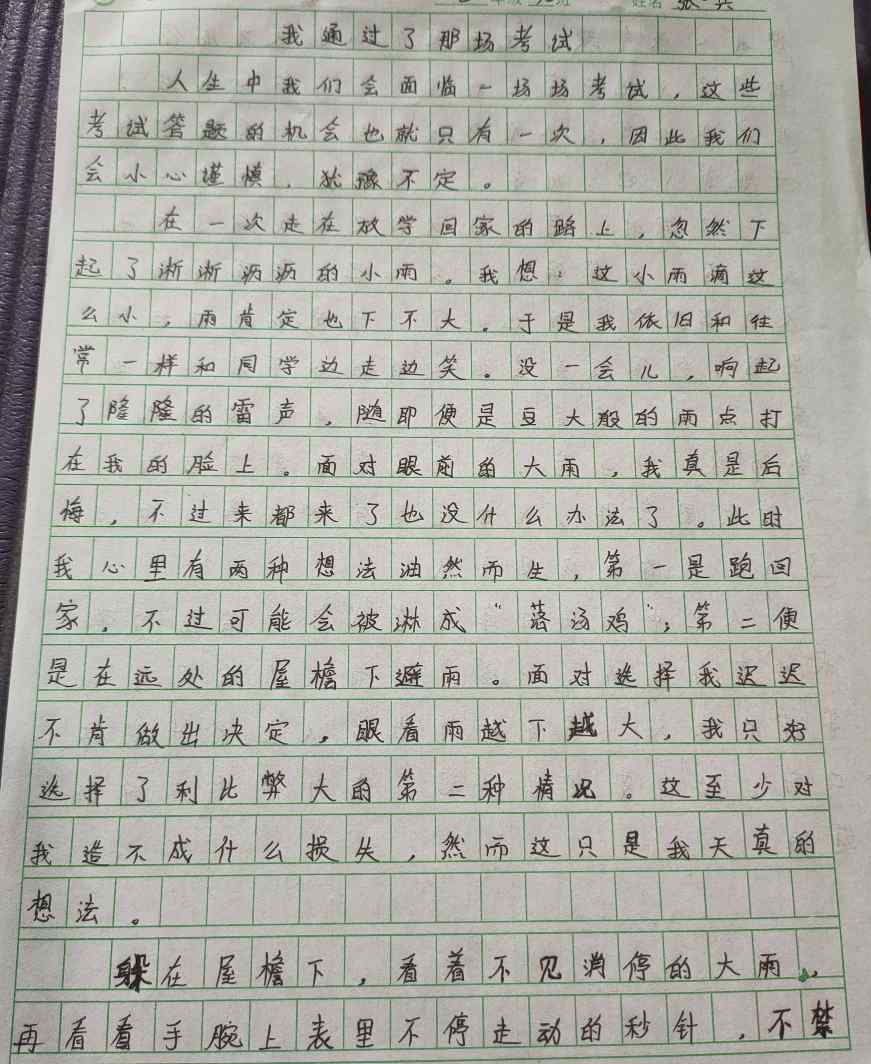 我通过了那场考试
人生中我们会面临一场场考试，这些
考试答题的机会也就只有一次，因此我们
会小心谨慎，犹豫不定。
在一次走在放学回家的路上，忽然下
起了淅淅沥沥的小雨。我想：这小雨滴这
么小，雨肯定也下不大。于是我依旧和往
常一样和同学边走边笑。没一会儿，响起
了隆隆的雷声，随即便是豆大般的雨点打
在我的脸上。面对眼前的大雨，我真是后
悔，不过来都来了也没什么办法了。此时
我心里有两种想法油然而生，第一是跑回
家，不过可能会被淋成“落汤鸡”；第二便
是在远处的屋檐下避雨。面对选择我迟迟
不肯做出决定，眼看雨越下越大，我只好
选择了利比弊大的第二种情况。这至少对
我造不成什么损失，然而这只是我天真的
想法。
躲在屋檐下，看着不见消停的大雨，
再看看手腕上表里不停走动的秒针，不禁